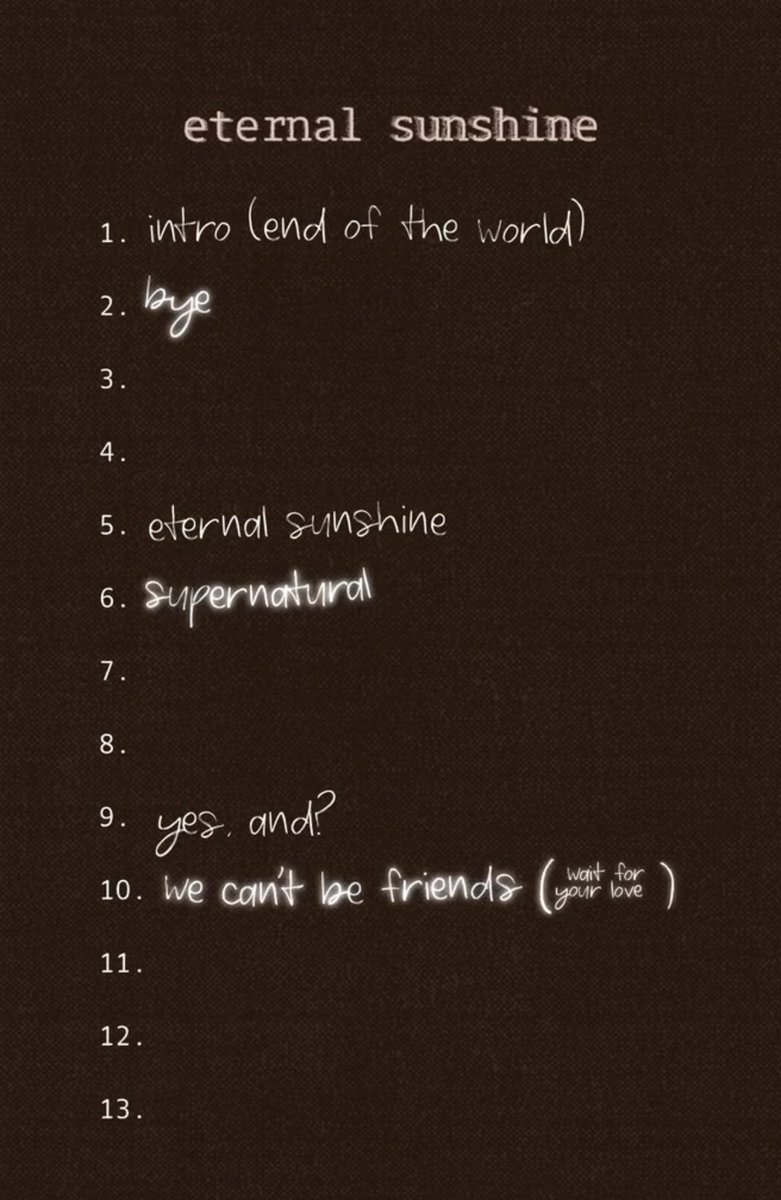 eternal sunshine
1. intro (end of the world)
2. bye
3.
4.
5. eternal sunshine
6. supernatural
7.
8.
9. yes, and?
10. we can't be friends (wait for your love)
11.
12.
13.